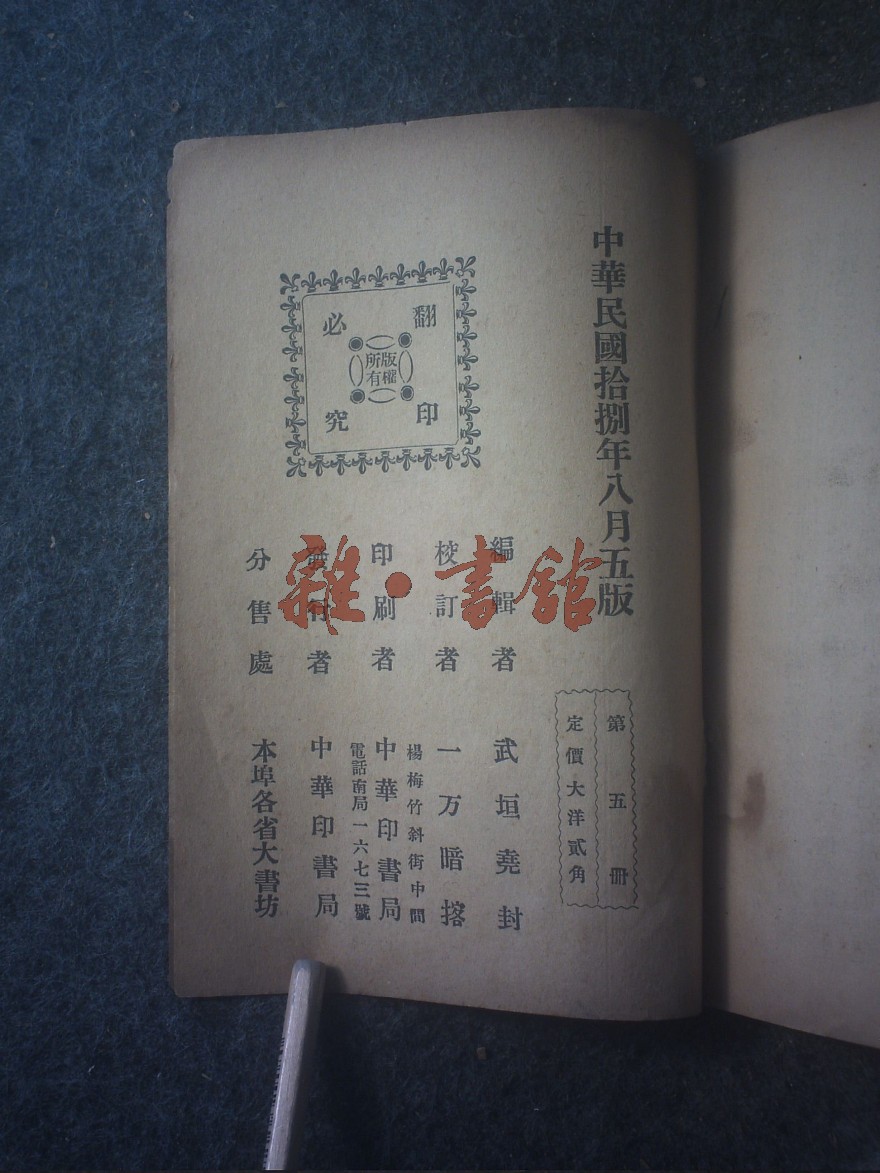 中華民國拾捌年八月五版
第五冊
定價大洋貳角
翻印必究
版權所有
編輯者 武垣堯封
校訂者 一万暗搈
楊梅竹斜街中間
印刷者 中華印書局
電話南局一六七三號
發行者 中華印書局
分售處 本埠各省大書坊
雜·書館